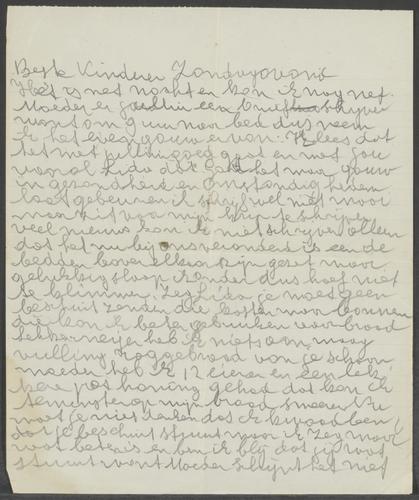 Beste Kinderen Zondagavond
Het is net nacht en kan ik nog net
Moeder er een brief schrijven
want om 9 uur naar bed dus neem
ik het even gauw er van. Ik lees dat
het met gaat en met jou
vooral Lida dat het maar gauw
in gezondheid en omstandigheden
laat gebeuren ik schrijf wel niet mooi
maar zit voor mijn krib te schrijven
veel nieuws kan ik niet schrijven alleen
dat het nu bij ons veranderd is en de
bedden boven elkaar zijn gezet maar
gelukkig slaap ik onder dus hoef niet
te klimmen. Zeg Lida je moet geen
beschuit zenden die kosten maar bonnen
die kan ik beter gebruiken voor brood
lekkernijen heb ik niets aan, maag
vulling roggebrood van je schoon
moeder heb ik 12 eieren en een lek
kere pot honing gehad dat kan ik
tenminste op mijn brood smeren. Nu
moet je niet denken dat ik kwaad ben
dat je beschuit stuurt maar ik zeg maar
wat beter is en ben ik blij dat jij wat
stuurt want Moeder het niet